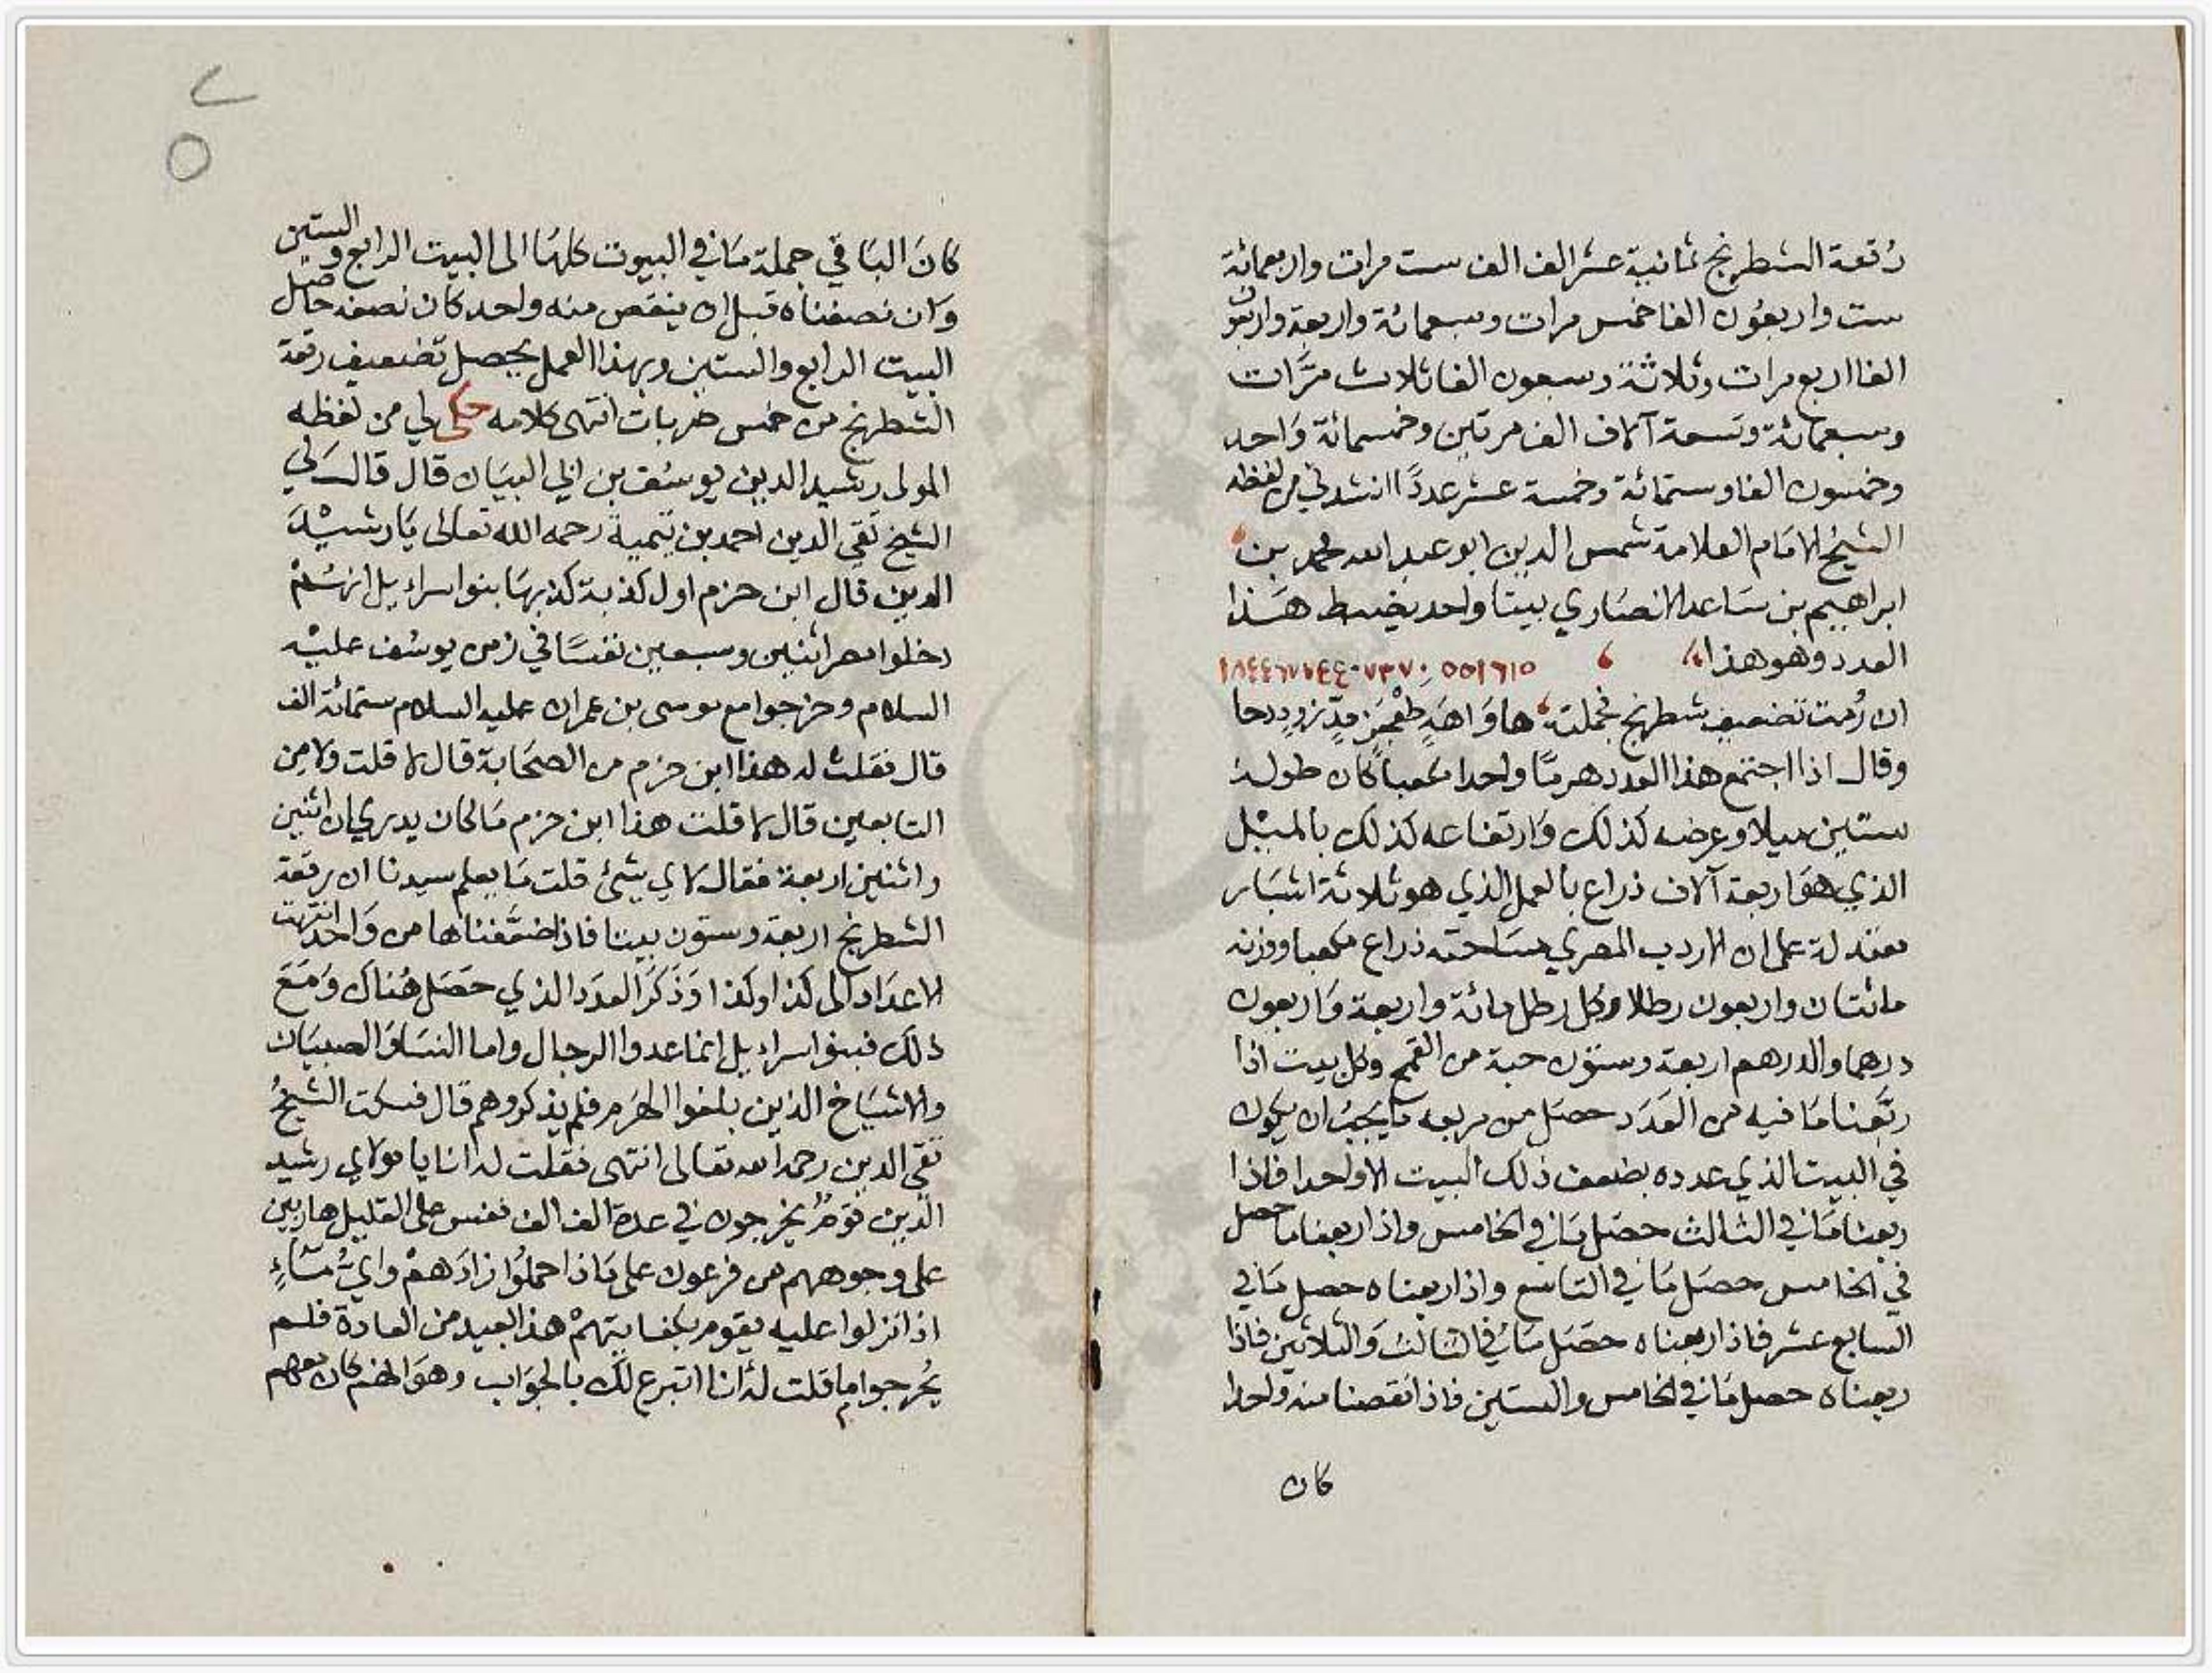 رقعة الشطرنج ثمانية عشر الف الف ست مرات واربعمائة
ست واربعون الفا خمس مرات وسبعمائة واربعة واربعون
الفا اربع مرات وثلاثة وسبعون الفا ثلاث مرات
وسبعمائة وتسعة آلاف الف مرتين وخمسمائة واحد
وخمسون الفا وستمائة وخمسة عشر عددا انشدني من لفظه
الشيخ الامام العلامة شمس الدين ابو عبد الله محمد بن
ابراهيم بن ساعد الانصاري بيتا واحد يضبط هذا
العدد وهو هذا ١٨٤٤٦٧٤٤٠٧٣٧٠٥٥١٦١٥
ان رمت تضعيف شطرنج بجملته ها واهه طعجز مد زود دحا
وقال اذا اجتمع هذا العدد هرما واحدا مكعبا كان طوله
ستين ميلا وعرضه كذلك وارتفاعه كذلك بالميل
الذي هو اربعة آلاف ذراع بالعمل الذي هو ثلاثة اشبار
معتدلة على ان الاردب المصري مساحته ذراع مكعبا ووزنه
مائتان واربعون رطلا وكل رطل مائة واربعة واربعون
درهما والدرهم اربعة وستون حبة من القمح وكل بيت اذا
ربعنا ما فيه من العدد حصل من مربعه ما يجب ان يكون
في البيت الذي عدده بضعف ذلك البيت الا واحدا فاذا
ربعنا ما في الثالث حصل ما في الخامس واذا ربعنا ما حصل
في الخامس حصل ما في التاسع واذا ربعناه حصل ما في
السابع عشر فاذا ربعناه حصل ما في الثالث والثلاثين فاذا
ربعناه حصل ما في الخامس والستين فاذا نقصنا منه واحدا
كان
٥
كان الباقي جملة ما في البيوت كلها الى البيت الرابع والستين
وان نصفناه قبل ان ينقص منه واحد كان نصفه حاصل
البيت الرابع والستين وبهذا العمل يحصل تضعيف رقعة
الشطرنج من خمس ضربات انتهى كلامه حكى لي من لفظه
المولى رشيد الدين يوسف بن ابي البيان قال قال لي
الشيخ تقي الدين احمد بن تيمية رحمه الله تعالى يا رشيد
الدين قال ابن حزم اول كذبة كذبها بنوا اسرايل انهم
دخلوا مصر اثنين وسبعين نفسا في زمن يوسف عليه
السلام وخرجوا مع موسى بن عمران عليه السلام ستمائة الف
قال فقلت له هذا ابن حزم من الصحابة قال لا قلت ولا من
التابعين قال لا قلت هذا ابن حزم ما كان يدري ان اثنين
واثنين اربعة فقال لاي شيئ قلت ما يعلم سيدنا ان رقعة
الشطرنج اربعة وستون بيتا فاذا ضعفناها من واحد انتهت
الاعداد الى كذا وكذا وذكر العدد الذي حصل هناك ومع
ذلك فبنوا اسرايل انما عدوا الرجال واما النسا والصبيان
والاشياخ الذين بلغوا الهرم فلم يذكروهم قال فسكت الشيخ
تقي الدين رحمه الله تعالى انتهى فقلت له انا يا مولاي رشيد
الدين قوم يخرجون في عدة الف الف نفس على القليل هاربين
على وجوههم من فرعون على ماذا حملوا زادهم واي ماء
اذا نزلوا عليه يقوم بكفايتهم هذا لبعيد من العادة فلم
يحر جوابا قلت له انا اتبرع لك بالجواب وهو انهم كان معهم